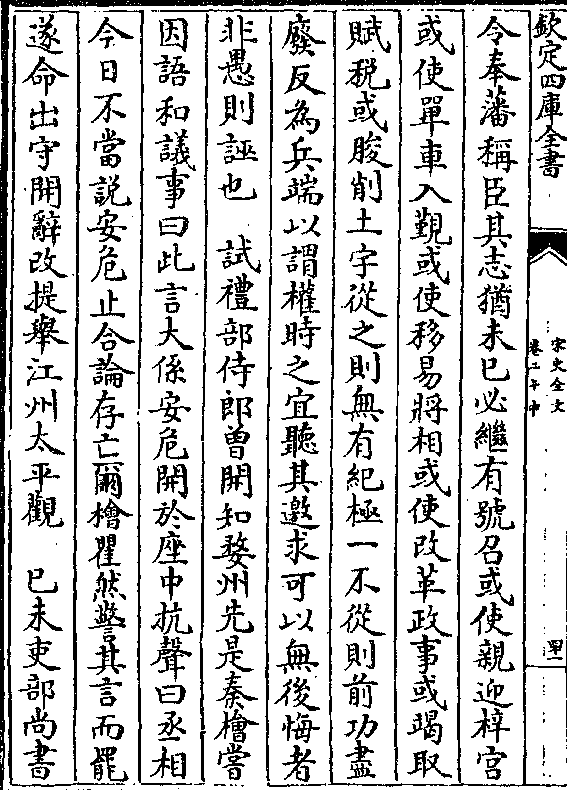 欽定四庫全書
宋史全文
卷二十中
令奉藩稱臣其志猶未已必繼有號召或使親迎梓宫
或使單車入覲或使移易將相或使改革政事或竭取
賦税或朘削土宇從之則無有紀極一不從則前功盡
廢反為兵端以謂權時之宜聽其邀求可以無後悔者
非愚則誣也　試禮部侍郎曾開知婺州先是秦檜嘗
因語和議事曰此言大係安危開於座中抗聲曰丞相
今日不當説安危止合論存亡爾檜瞿然驚其言而罷
遂命出守開辭改提舉江州太平觀　已未吏部尚書